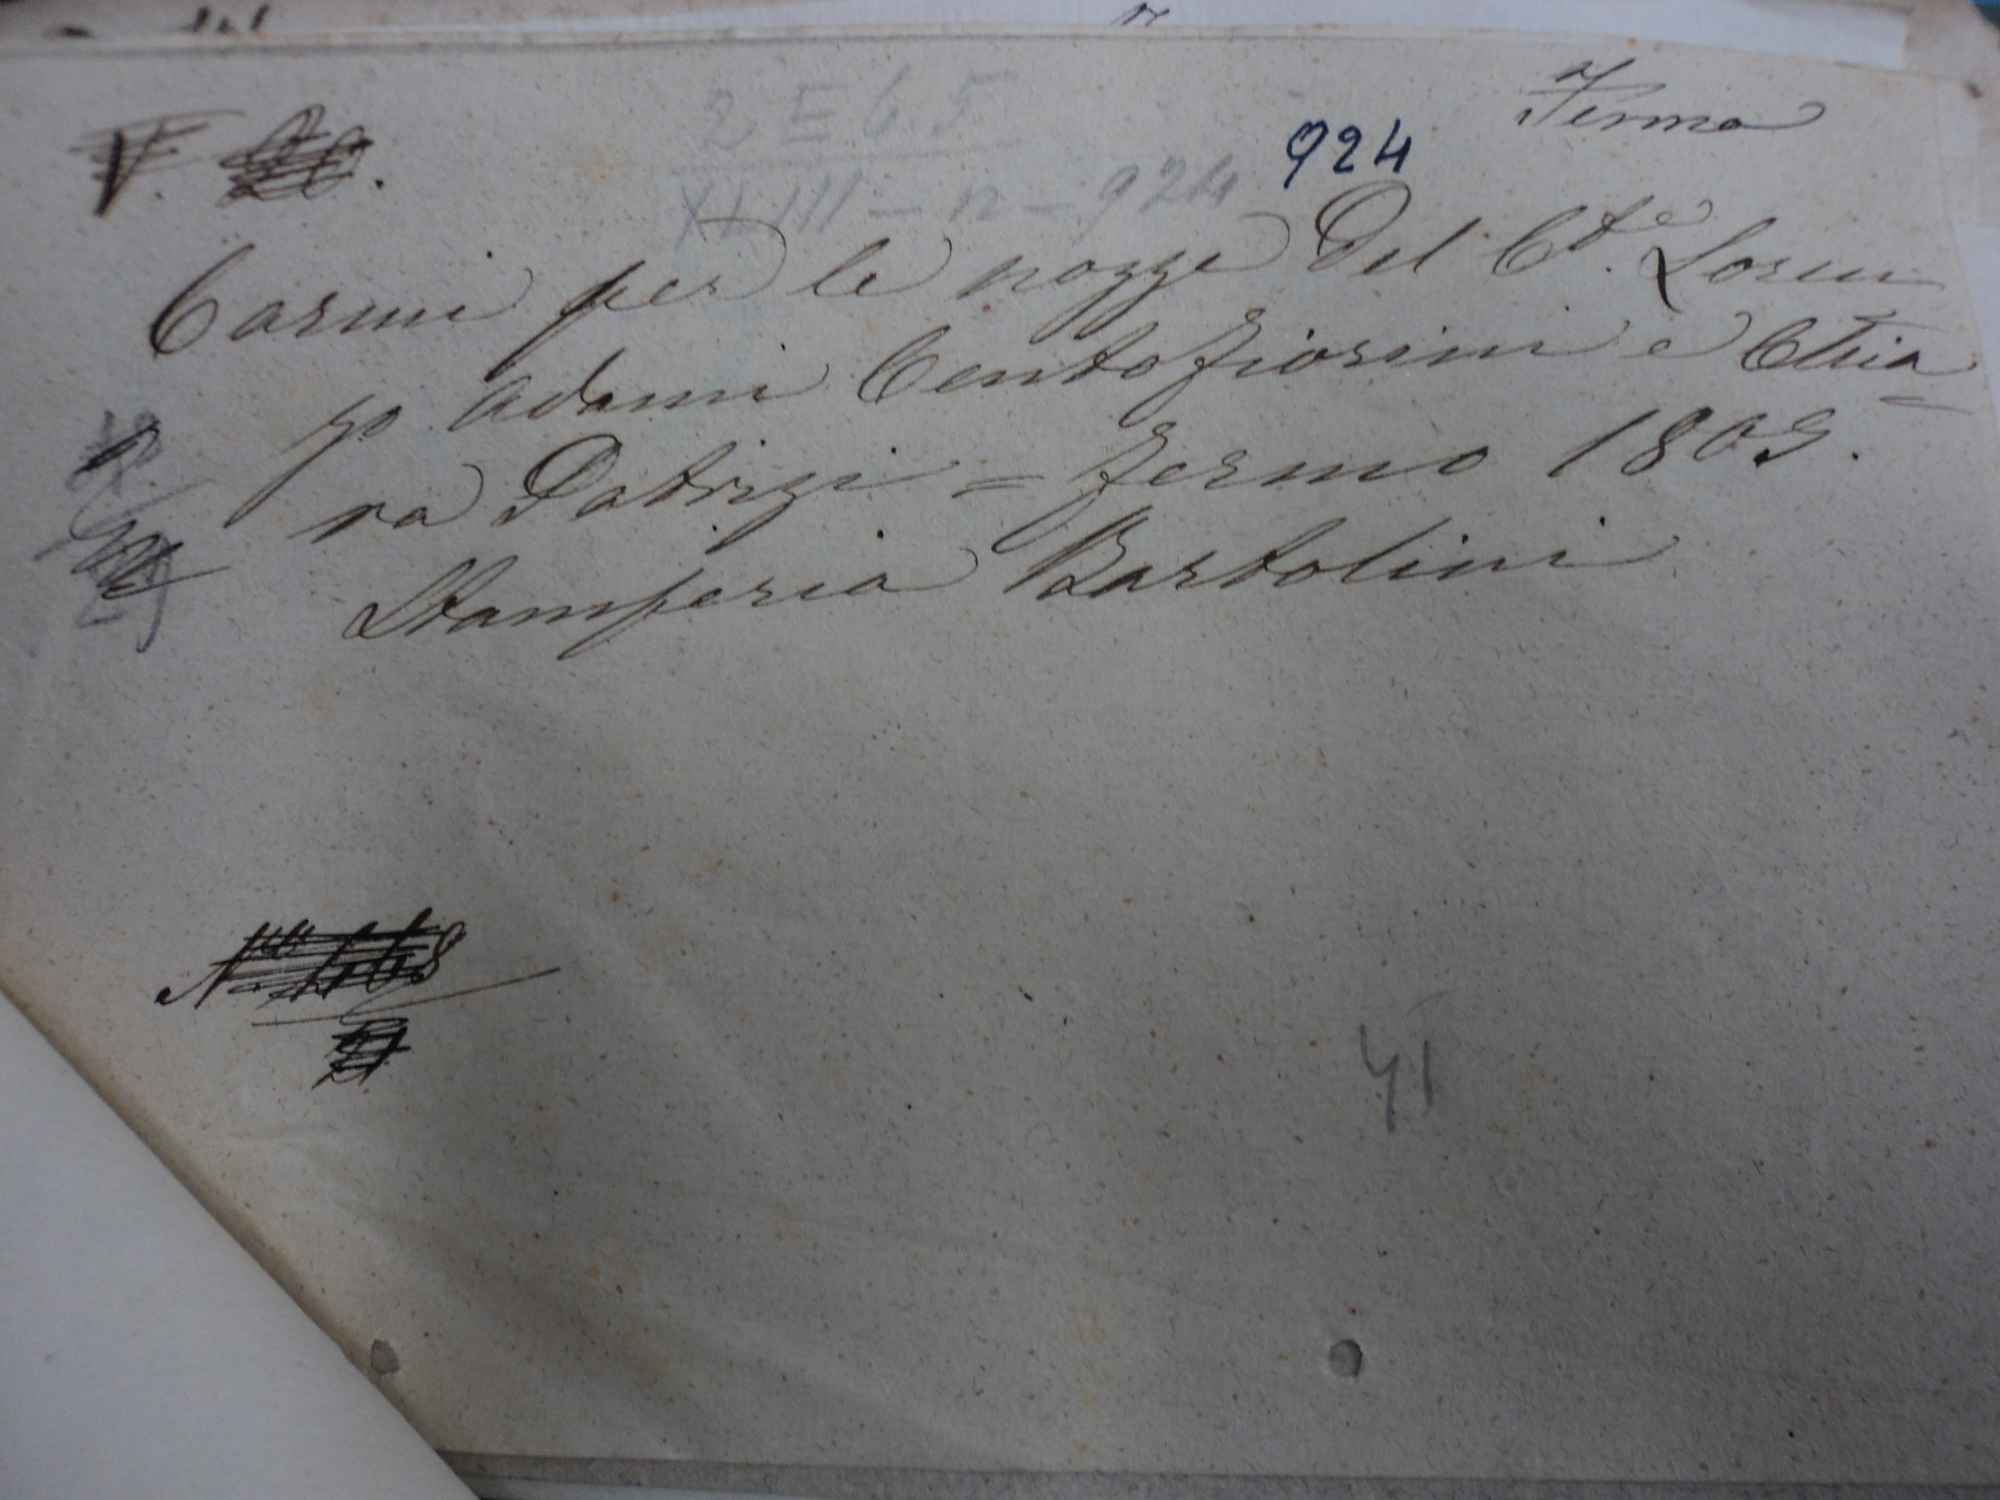 Fermo
2 E 6 5
924
XLIII - n - 924
V. 20.
Carmi per le nozze del C.te Loren
zo Adami Centofiorini e Chia=
ra Patrizi = Fermo 1809.
Stamperia Bartolini
41